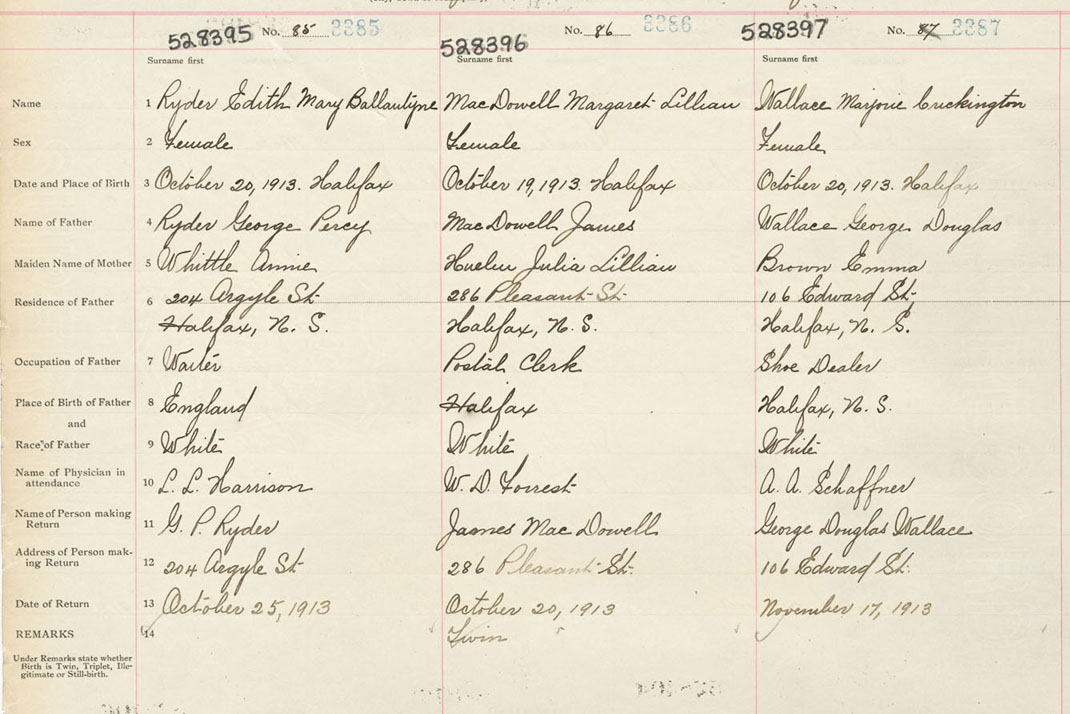 528395 No. 85 3385 528396 No. 86 3386 528397 No. 87 3387
Surname first Surname first Surname first
Name 1 Ryder Edith Mary Ballantyne MacDowell Margaret Lillian Wallace Marjorie Cuckington
Sex 2 Female Female Female
Date and Place of Birth 3 October 20, 1913. Halifax October 19, 1913. Halifax October 20, 1913. Halifax
Name of Father 4 Ryder George Percy MacDowell James Wallace George Douglas
Maiden Name of Mother 5 Whittle Annie Julia Lillian Brown Emma
Residence of Father 6 204 Argyle St 286 Pleasant St. 106 Edward St,
Halifax, N. S. Halifax, N. S. Halifax, N. S.
Occupation of Father 7 Waiter Postal Clerk Shoe Dealer
Place of Birth of Father 8 England Halifax Halifax, N. S.
and
Race of Father 9 White White White
Name of Physician in
attendance 10 L. L. Harrison W. D. Forrest A. A. Schaffner
Name of Person making
Return 11 G. P. Ryder James Mac Dowell George Douglas Wallace
Address of Person mak-
ing Return 12 204 Argyle St 286 Pleasant St. 106 Edward St.
Date of Return 13 October 25, 1913 October 20, 1913 November 17, 1913
REMARKS 14 Twin
Under Remarks state whether
Birth is Twin, Triplet, Ille-
gitimate or Still-birth.